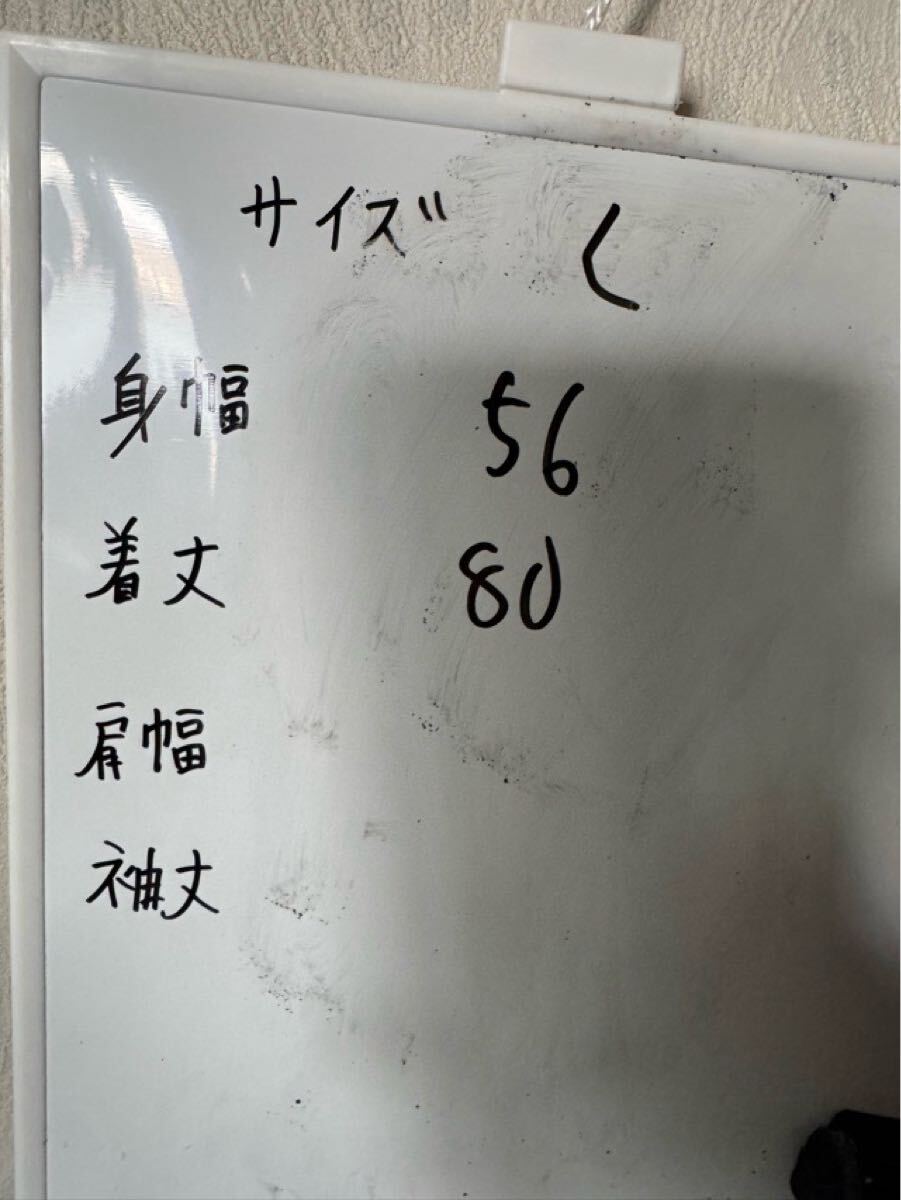 サイズ L
身幅 56
着丈 80
肩幅
袖丈